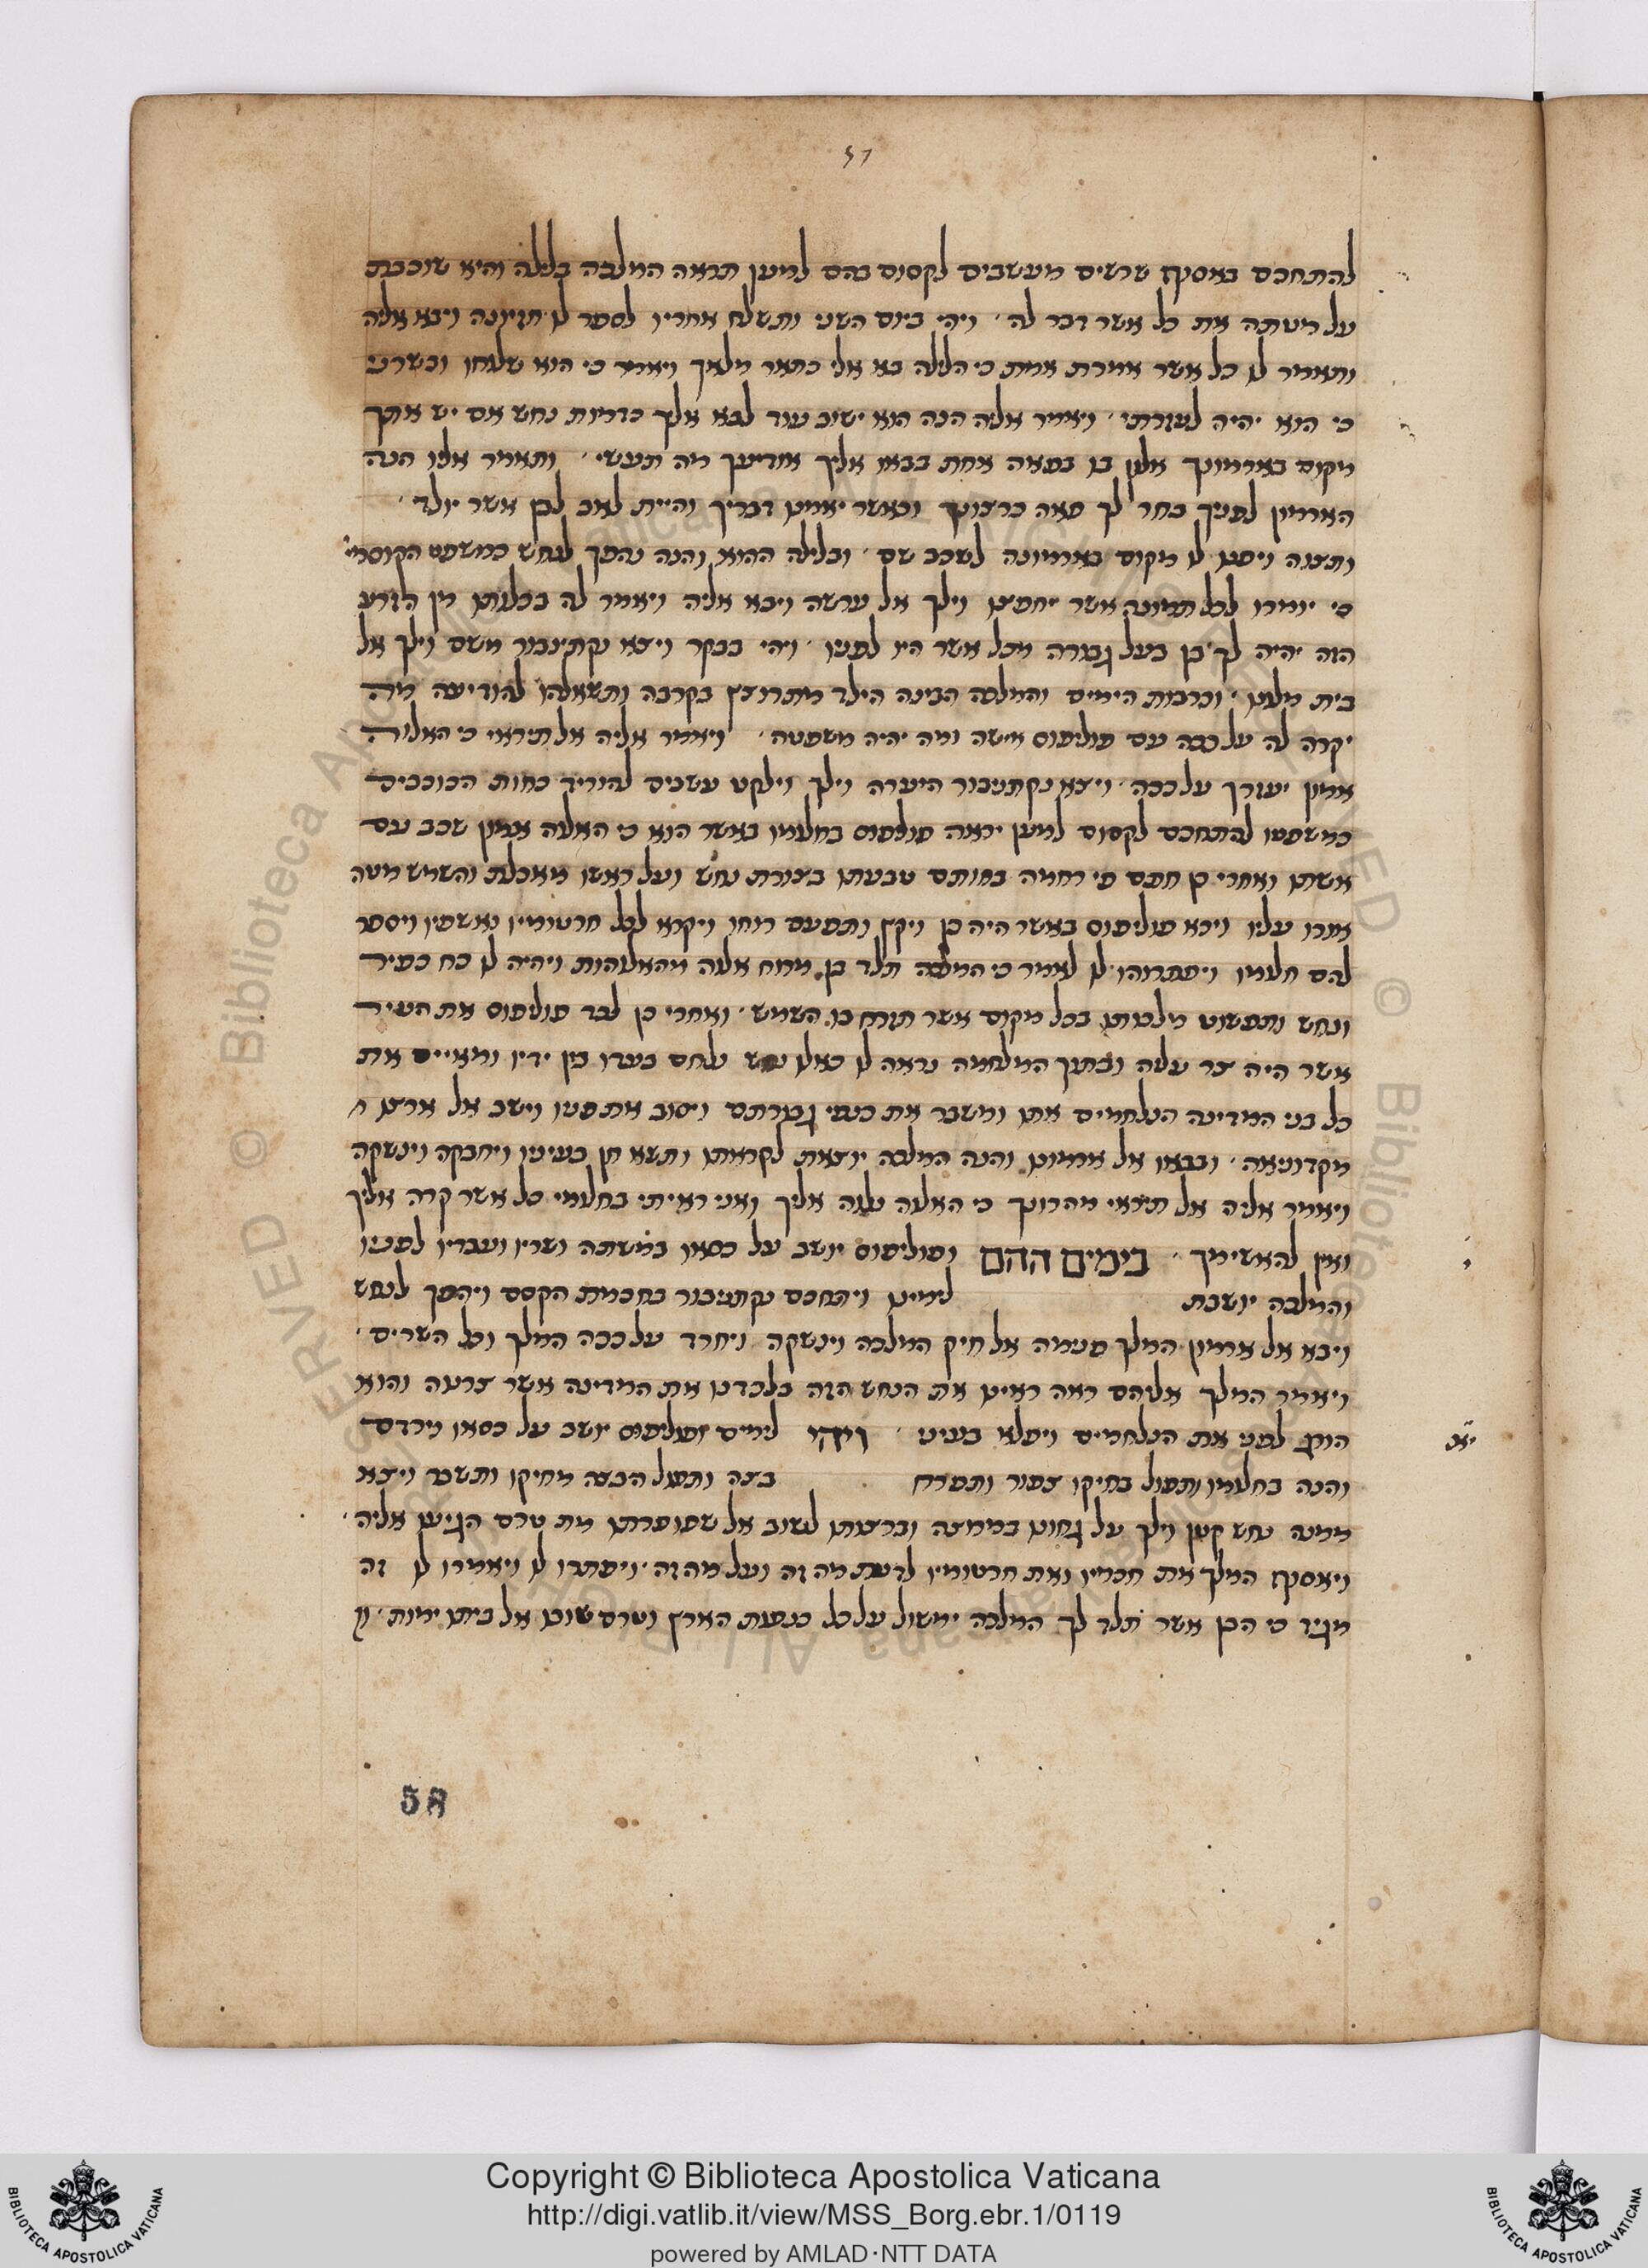 57
להתחכם באסוף שרשים מעשבים לקסום בהם למען תראה המלכה בלילה והיא שוכבת
על מטתה את כל אשר דבר לה ׳ ויהי ביום השני ותשלח אחריו לספר לו חזיונה ויבא אליה
ותאמר לו כל אשר אמרת אמת כי הלילה בא אלי כתאר מלאך ויאמר כי הוא שלוחו ובשרני
כי הוא יהיה לעזרתי ׳ ויאמר אליה הנה הוא ישוב עוד לבא אליך כדמות נחש אם יש אתך
מקום בארמונך אלון בו בפאה אחת בבאו אליך אודיעך מה תעשי ׳ ותאמר אליו הנה
הארמון לפניך בחר לך פאה כרצונך וכאשר יאמנו דבריך והיית לאב לבן אשר יולד ׳
ותצוה ויפנו לו מקום בארמונה לשכב שם ׳ ובלילה ההוא והנה נהפך לנחש כמשפט הקוסמי׳
כי יומרו לכל תמונה אשר יחפצו וילך אל ערשה ויבא אליה ויאמר לה בכלותו מן הזרע
הזה יהיה לך בן בעל גבורה מכל אשר היו לפניו ׳ ויהי בבקר ויצא נקתינבור משם וילך אל
בית מלונו ׳ וכרבות הימים והמלכה הבינה הילד מתרוצץ בקרבה ותשאלהו להודיעה מה
יקרה לה על ככה עם פוליפוס אישה ומה יהיה משפטה ׳ ויאמר אליה אל תיראי כי האלוה
אמון יעזרך על ככה ׳ ויצא נקתנבור היערה וילך וילקט עשבים להוריד כחות הכוכבים
כמשפטו להתחכם לקסום למען יראה פוליפוס בחלומו כאשר הוא כי האלוה אמון שכב עם
אשתו ואחרי כן חתם פי רחמה בחותם טבעתו בצורת נחש ועל ראשו מאכלת והשמש מטה
אורו עליו ויבא פוליפוס כאשר היה כן ויקץ ותפעם רוחו ויקרא לכל חרטומיו ואשפיו ויספר
להם חלומו ויפתרוהו לו לאמר כי המלכה תלד בן מרוח אלוה מהאלהות ויהיה לו כח כפיר
ונחש ותפשוט מלכותו בכל מקום אשר תזרח בו השמש ׳ ואחרי כן לכד פוליפוס את העיר
אשר היה צר עליה ובתוך המלחמה נראה לו כאלו נחש נלחם בעדו בין ידיו ומאיים את
כל בני המדינה הנלחמים אתו ומשבר את כנפי גבורתם ויסוב את פניו וישב אל ארצו
מקדוניאה ׳ ובבאו אל ארמונו והנה המלכה יוצאת לקראתו ותשא חן בעיניו ויחבקה וינשקה
ויאמר אליה אל תיראי מהריונך כי האלוה נלוה אליך ואני ראיתי בחלומי כל אשר קרה אליך
ואין להאשימך ׳ בימים ההם ופוליפוס יושב על כסאו במשתה ושריו ועבדיו לפניו
והמלכה יושבת לימינו ויתחכם נקתנבור בחכמת הקסם ויהפך לנחש
ויבא אל ארמון המלך פנימה אל חיק המלכה וינשקה ויחרד על ככה המלך וכל השרים ׳
ויאמר המלך אליהם ראה ראינו את הנחש הזה בלכדנו את המדינה אשר צרנוה והוא
הורג לפני את הנלחמים ויפלא בעיני ׳ ויהי לימים ופוליפוס יושב על כסאו נירדם
והנה בחלומו ותפול בחיקו צפור ותפרח ביצה ותפול הביצה מחיקו ותשבר ויצא
ממנה נחש קטן וילך על גחונו במחיצה וברצותו לשוב אל שפופרתו מת טרם הגיעו אליה ׳
ויאסוף המלך את חכמיו ואת חרטומיו לדעת מה זה ועל מה זה ׳ ויפתרו לו ויאמרו לו זה
מגיד כי הבן אשר תלד לך המלכה ימשול על כל כנפות הארץ וטרם שובו אל ביתו ימות ׳
58
Copyright © Biblioteca Apostolica Vaticana
http://digi.vatlib.it/view/MSS_Borg.ebr.1/0119
powered by AMLAD·NTT DATA